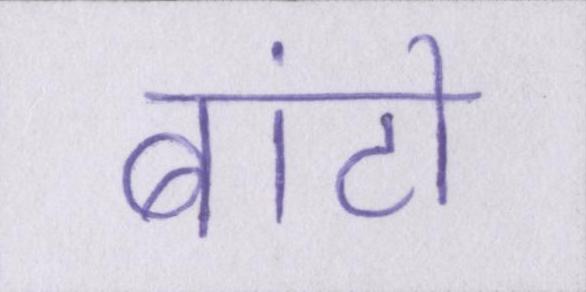 बांटो